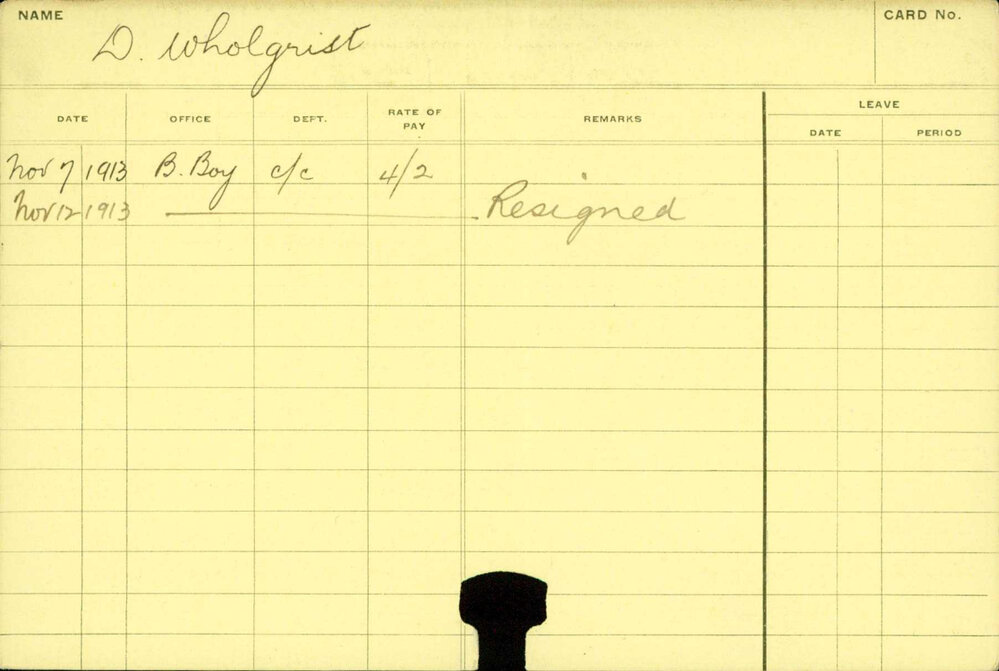 NAME D. Wholgrist CARD No.
LEAVE
DATE OFFICE DEPT. RATE OF PAY REMARKS DATE PERIOD
Nov 7 1913 B. Boy c/c 4/2
Nov 12 1913 Resigned